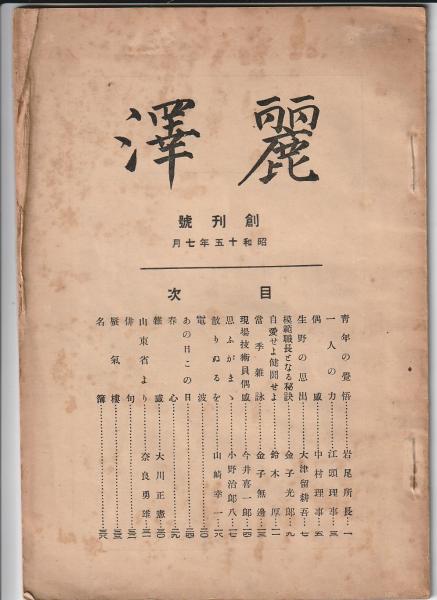 麗澤
創刊號
昭和十五年七月
目次
青年の覺悟……岩尾所長…一
一人の力……江頭理事…三
偶感……中村理事…五
生野の思出……大津留耕吾…七
模範職長となる秘訣……金子光郎…九
自愛せよ健闘せよ……鈴木厚…一一
當季雜詠……金子無邊…一三
現場技術員偶感……今井喜一郎…一四
思ふがまゝ……小野治郎八…一七
散りぬるを……山崎幸一…一八
電波……
あの日この日……
春心……
雜感……大川正憲…
山東省より……奈良勇雄…
俳句……
蜃氣樓……
名簿……